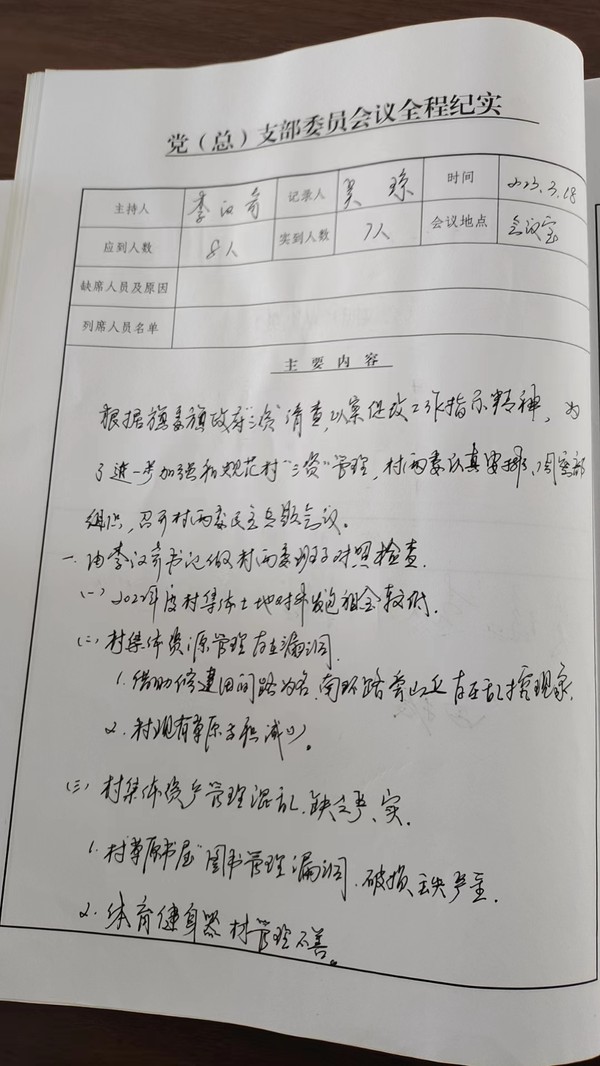 党（总）支部委员会议全程纪实
主持人 李汉奇 记录人 吴琼 时间 2023.3.18
应到人数 8人 实到人数 7人 会议地点 会议室
缺席人员及原因
列席人员名单
主要内容
根据旗委旗政府“三资”清查,以案促改工作指示精神，为
了进一步加强和规范村“三资”管理,村两委认真安排、周密部
组织,召开村两委民主专题会议。
一.由李汉奇书记做村两委班子对照检查.
(一)2022年度村集体土地对外发包租金较低.
(二)村集体资源管理存在漏洞.
1.借助修建田间路为名,南环路 存在乱挖现象.
2.村现有草原面积减少。
(三)村集体资产管理混乱.缺乏严、实.
1.村草原书屋”图书管理漏洞.破损丢失严重.
2.体育健身器材管理不善。